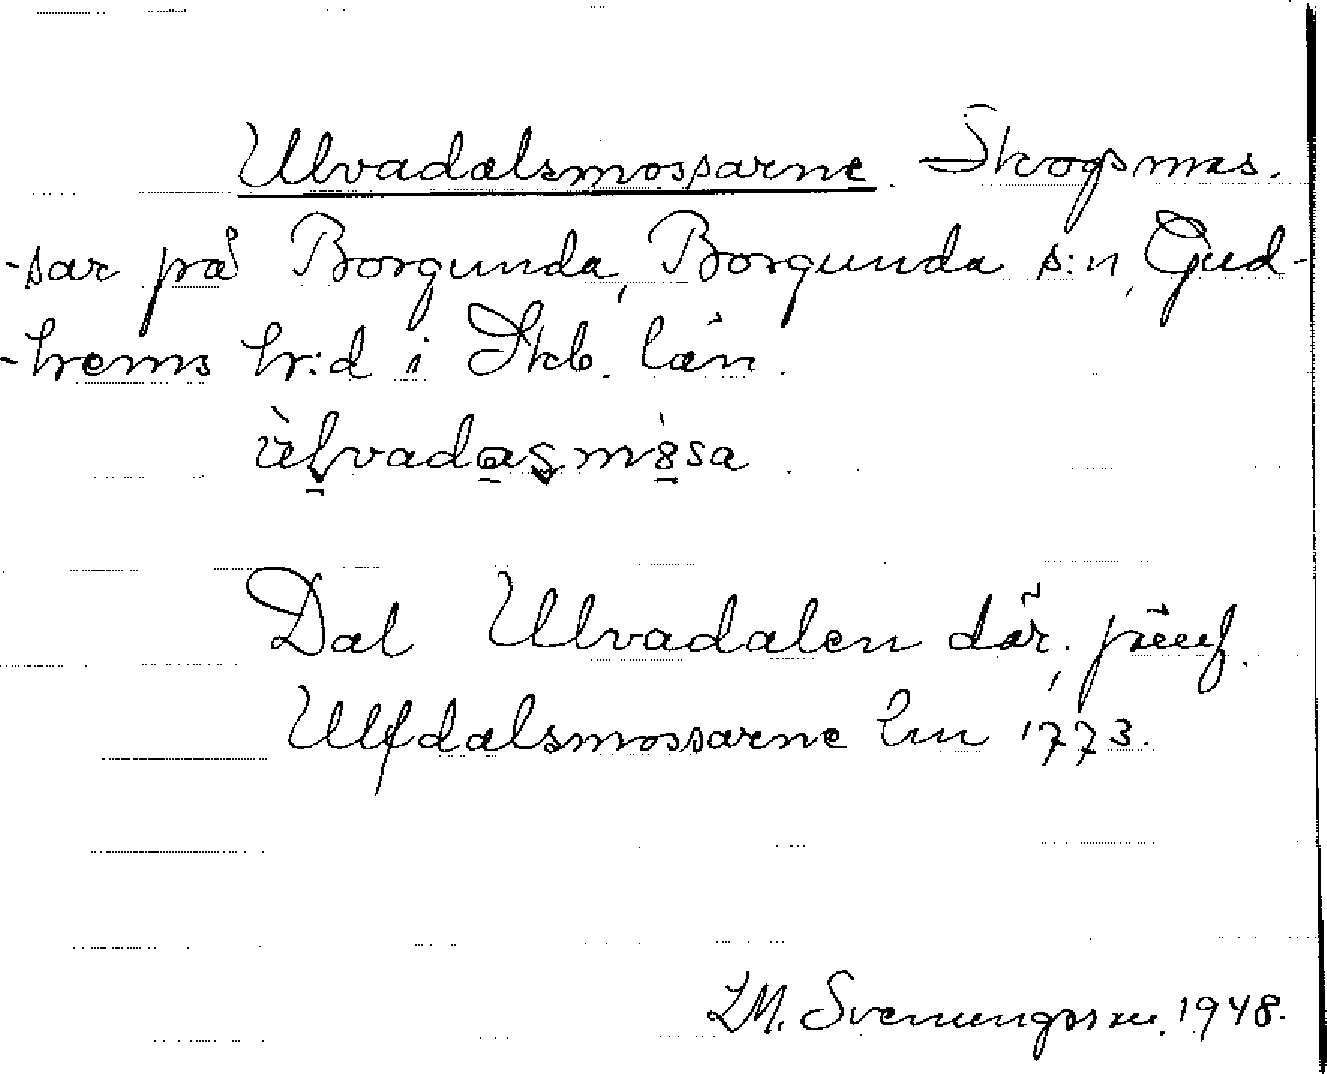 Ulvadalsmossarne. Skogsmos-
-sar på Borgunda, Borgunda s:n, Gud-
-hems hr:d i Skb. län.
Dal Ulvadalen där, jämf.
Ulfdalsmossarne lm 1773.
LM. Svenungsson. 1948.